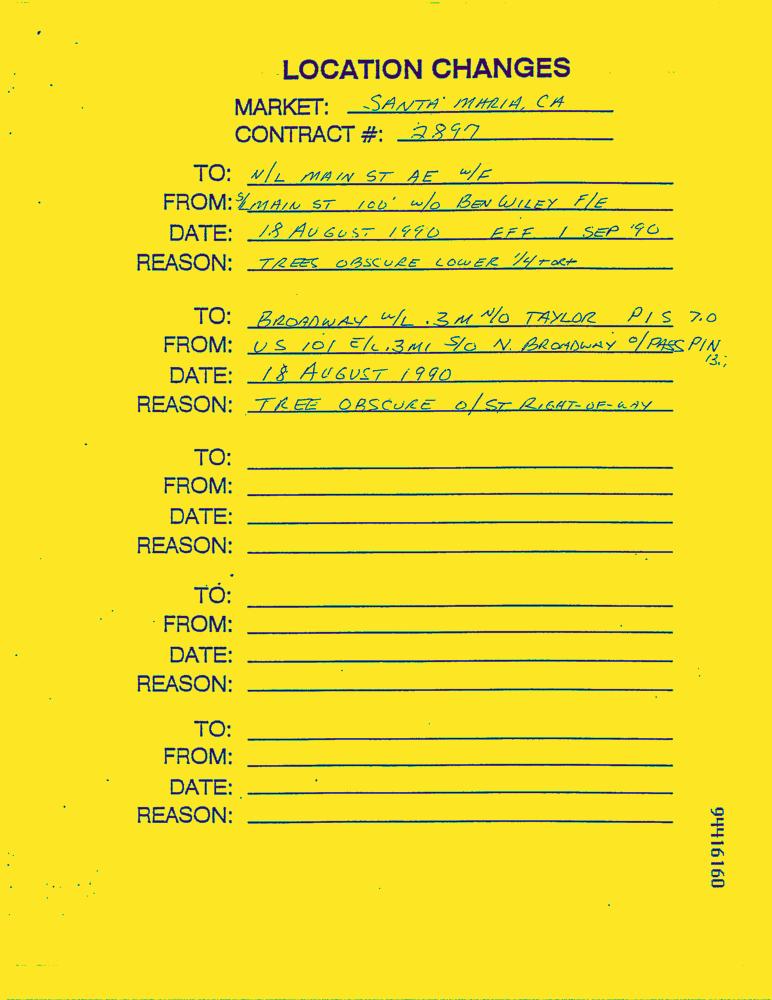 LOCATION CHANGES
MARKET: SANTA MARIA, CA
CONTRACT #: 2897
TO: N/L MAIN ST AE W/F
FROM: S/L MAIN ST 100' W/O BEN WILEY F/E
DATE: 18 AUGUST 1990 EFF 1 SEP '90
REASON: TREES OBSCURE LOWER 1/4
TO: BROADWAY W/L .3M N/O TAYLOR PIS 7.0
FROM: US 101 E/L .3MI S/O N. BROADWAY O/PASS PIN
DATE: 18 AUGUST 1990
REASON: TREE OBSCURE O/ST RIGHT-OF-WAY
TO:
FROM:
DATE:
REASON:
TO:
FROM:
DATE:
REASON:
TO:
FROM:
DATE:
REASON:
94416160